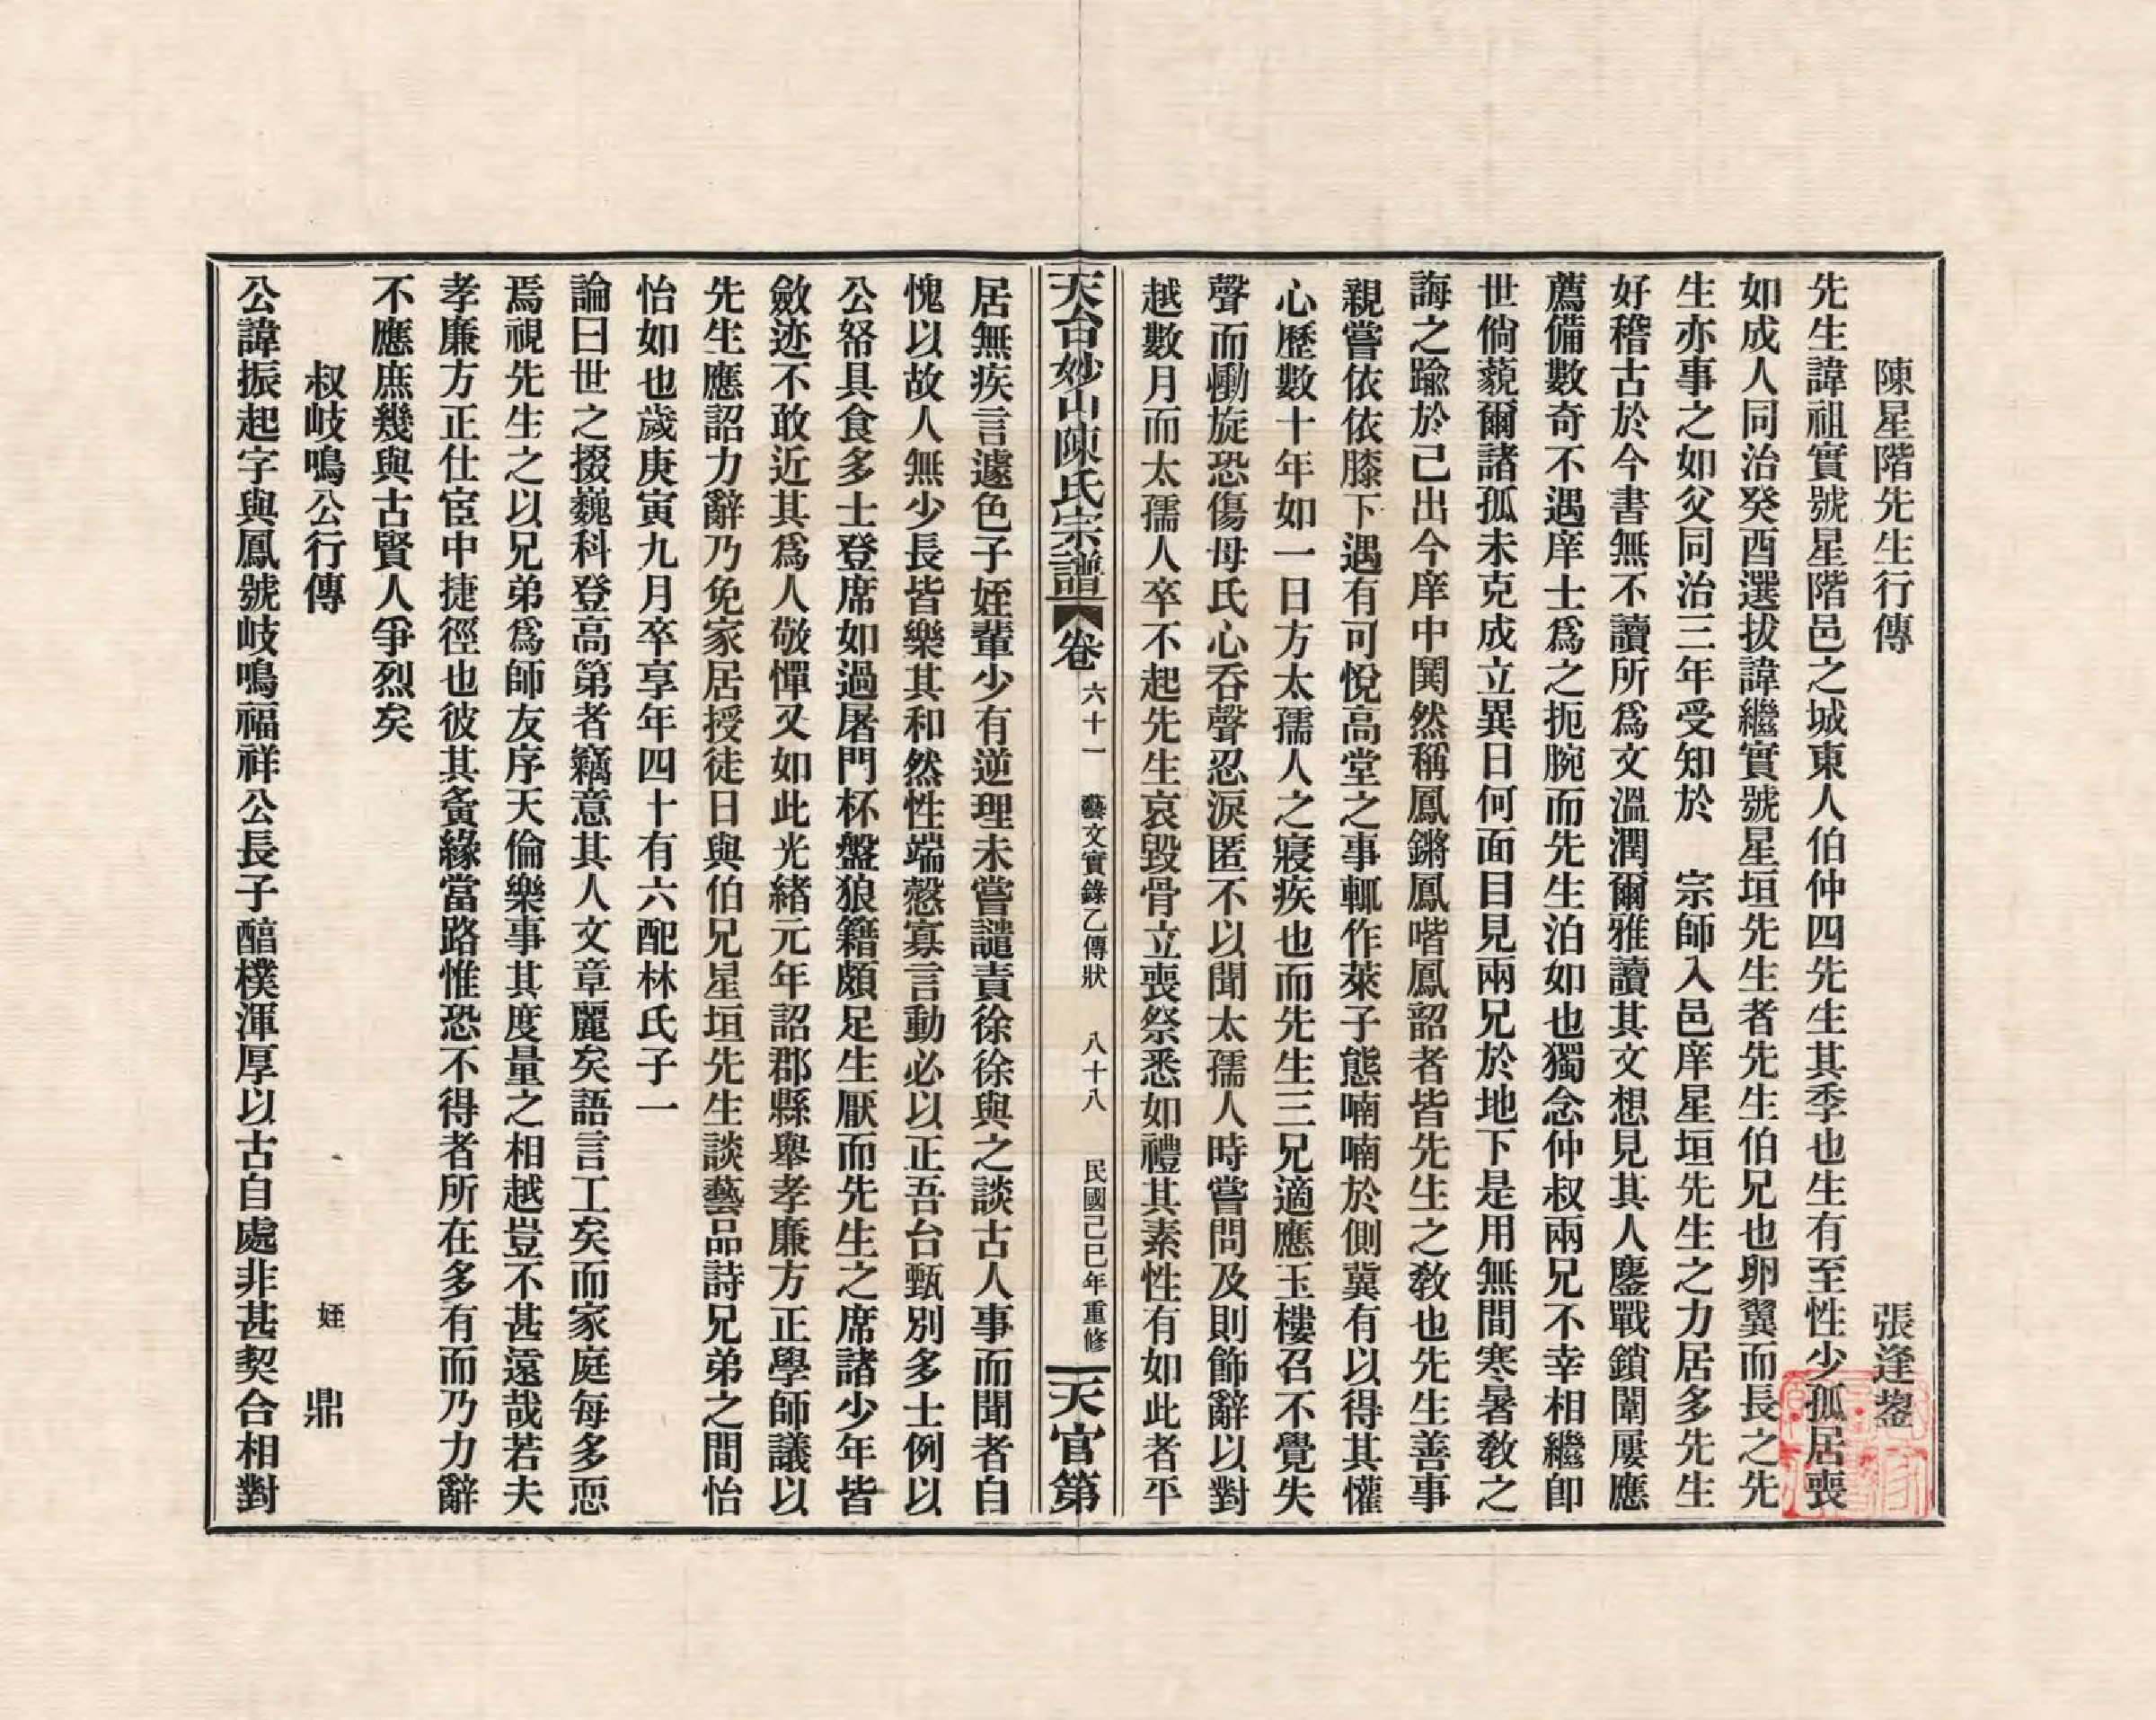 陳星階先生行傳　張逢鋆
先生諱祖實號星階邑之城東人伯仲四先生其季也生有至性少孤居喪
如成人同治癸酉選拔諱繼實號星垣先生者先生伯兄也卵翼而長之先
生亦事之如父同治三年受知於　宗師入邑庠星垣先生之力居多先生
好稽古於今書無不讀所爲文溫潤爾雅讀其文想見其人鏖戰鎖闈屢應
薦備數奇不遇庠士爲之扼腕而先生泊如也獨念仲叔兩兄不幸相繼卽
世倘藐爾諸孤未克成立異日何面目見兩兄於地下是用無間寒暑敎之
誨之踰於己出今庠中閧然稱鳳鏘鳳喈鳳韶者皆先生之敎也先生善事
親嘗依依膝下遇有可悅高堂之事輒作萊子態喃喃於側冀有以得其懽
心歷數十年如一日方太孺人之寢疾也而先生三兄適應玉樓召不覺失
聲而慟旋恐傷母氏心吞聲忍淚匿不以聞太孺人時嘗問及則飾辭以對
越數月而太孺人卒不起先生哀毀骨立喪祭悉如禮其素性有如此者平
天台妙山陳氏宗譜　卷六十一　藝文實錄乙傳狀　八十八　民國己巳年重修　天官第
居無疾言遽色子姪輩少有逆理未嘗譴責徐徐與之談古人事而聞者自
愧以故人無少長皆樂其和然性端慤寡言動必以正吾台甄別多士例以
公帑具食多士登席如過屠門杯盤狼籍頗足生厭而先生之席諸少年皆
斂迹不敢近其爲人敬憚又如此光緒元年詔郡縣舉孝廉方正學師議以
先生應詔力辭乃免家居授徒日與伯兄星垣先生談藝品詩兄弟之間怡
怡如也歲庚寅九月卒享年四十有六配林氏子一
論曰世之掇巍科登高第者竊意其人文章麗矣語言工矣而家庭每多恧
焉視先生之以兄弟爲師友序天倫樂事其度量之相越豈不甚遠哉若夫
孝廉方正仕宦中捷徑也彼其夤緣當路惟恐不得者所在多有而乃力辭
不應庶幾與古賢人爭烈矣
叔岐鳴公行傳　姪　鼎
公諱振起字與鳳號岐鳴福祥公長子醕樸渾厚以古自處非甚契合相對